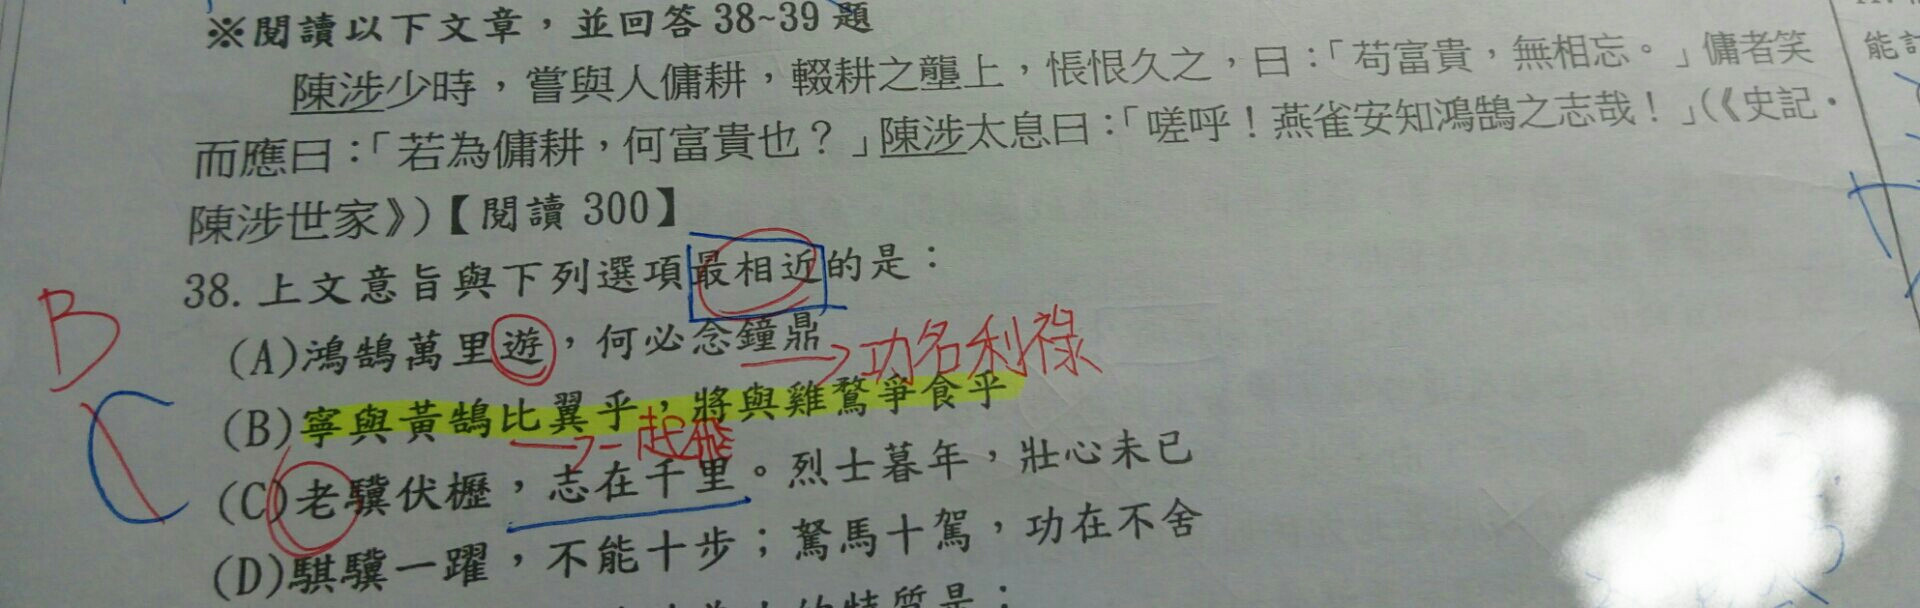 ※閱讀以下文章，並回答38~39題
陳涉少時，嘗與人傭耕，輟耕之壟上，悵恨久之，曰：「苟富貴，無相忘。」傭者笑
而應曰：「若為傭耕，何富貴也？」陳涉太息曰：「嗟呼！燕雀安知鴻鵠之志哉！」(《史記·
陳涉世家》)【閱讀 300】
38. 上文意旨與下列選項最相近的是：
B
(A)鴻鵠萬里遊，何必念鐘鼎
→功名利祿
(B)寧與黃鵠比翼乎，將與雞鶩爭食乎
→一起飛
C
(C)老驥伏櫪，志在千里。烈士暮年，壯心未已
(D)騏驥一躍，不能十步；駑馬十駕，功在不舍
的特質是：
能